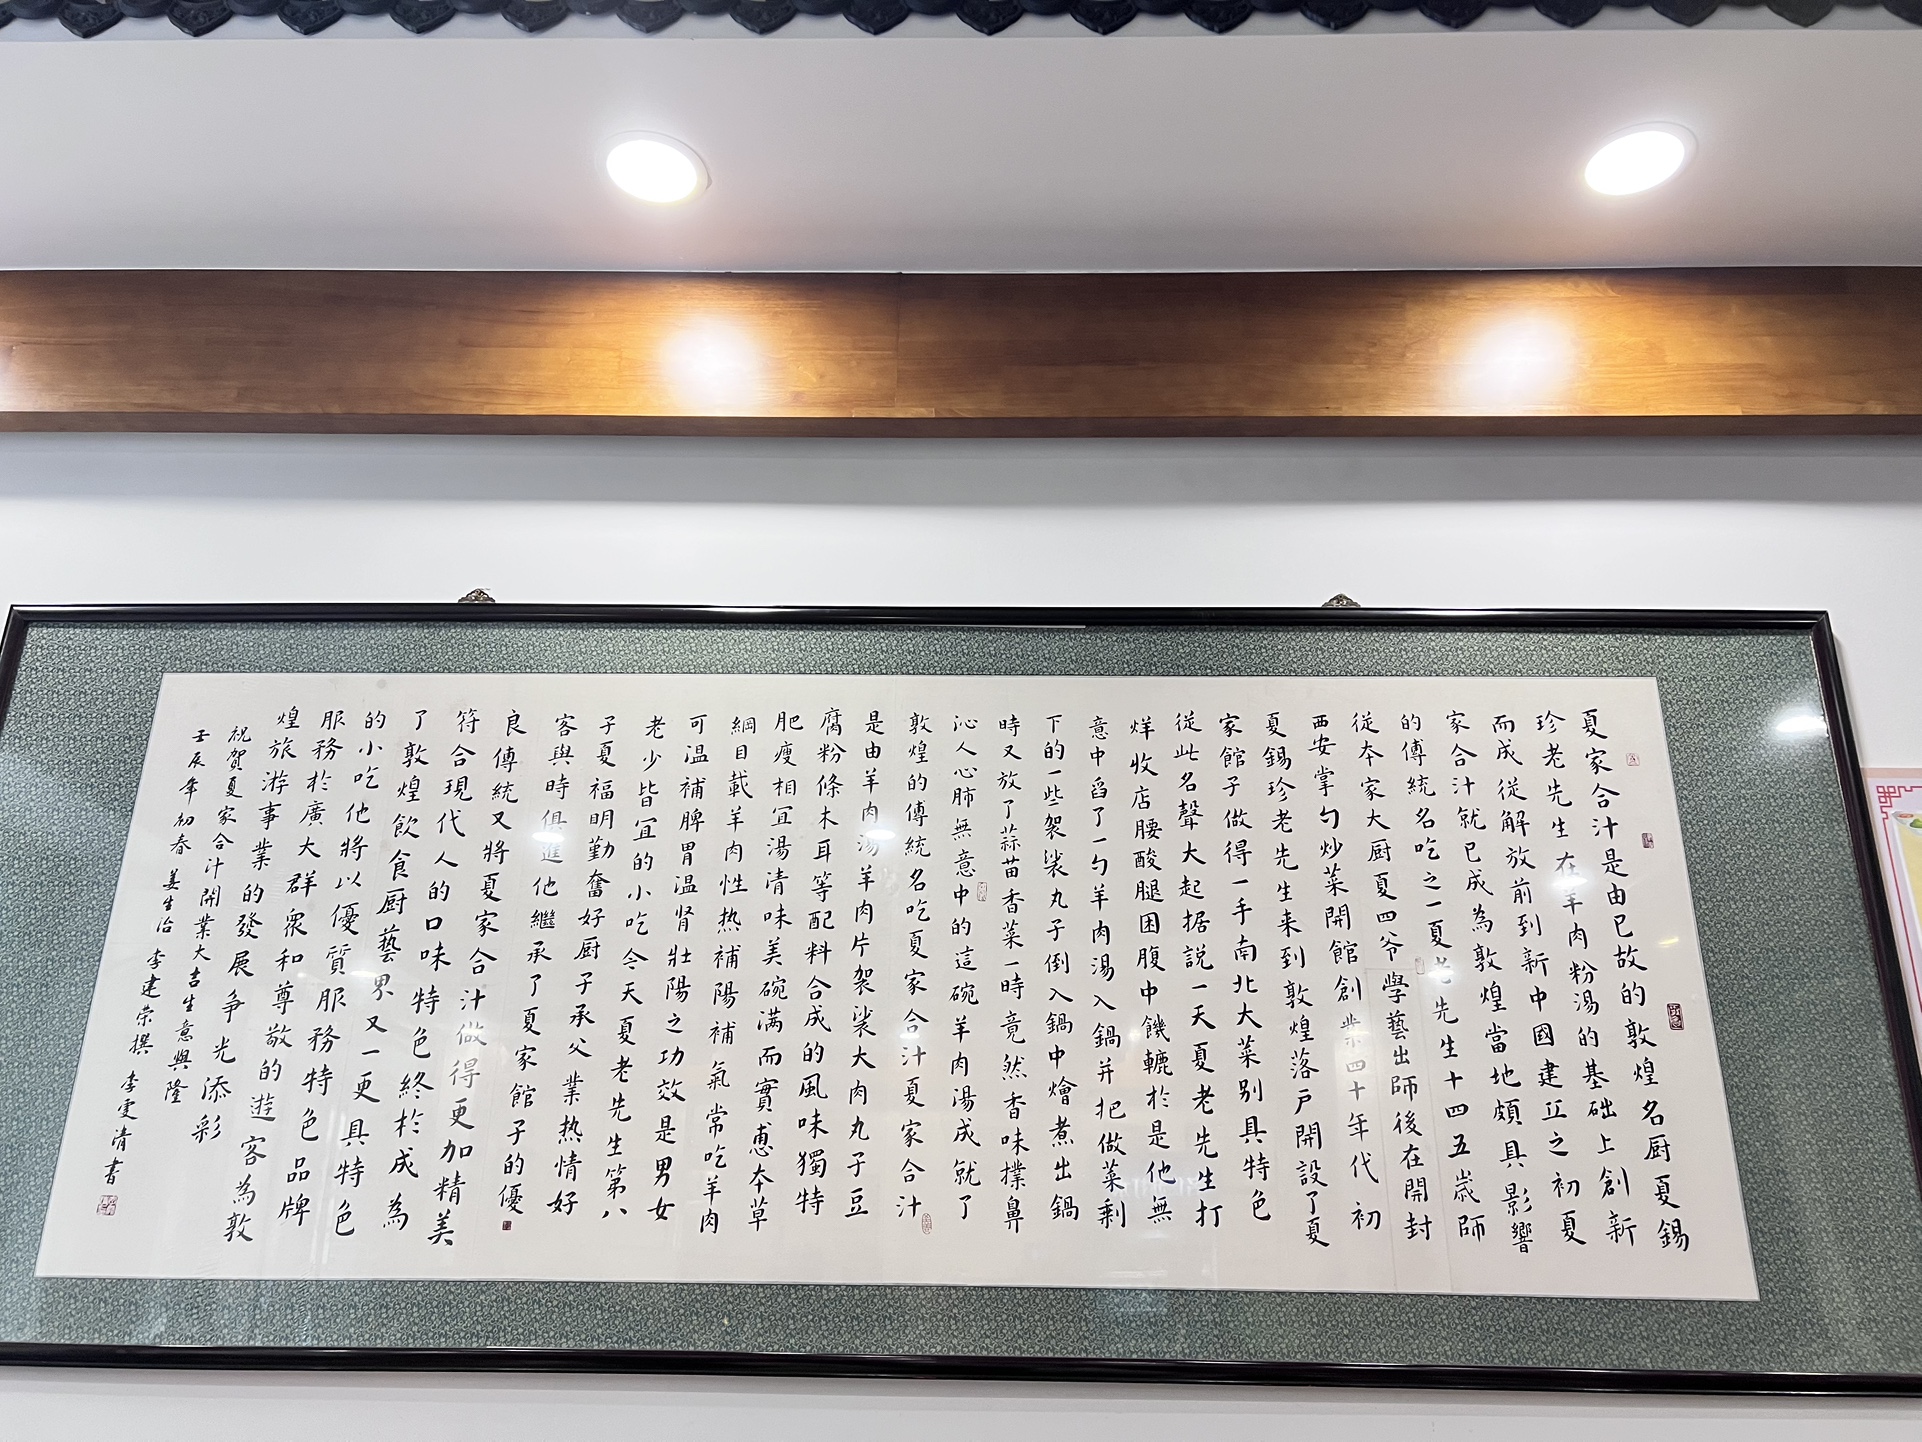 夏家合汁是由已故的敦煌名厨夏錫
珍老先生在羊肉粉湯的基础上創新
而成從解放前到新中國建立之初夏
家合汁就已成為敦煌當地頗具影響
的傳統名吃之一夏老先生十四五嵗師
從本家大厨夏四爷學藝出師後在開封
西安掌勺炒菜開館創業四十年代初
夏錫珍老先生来到敦煌落户開設了夏
家館子做得一手南北大菜别具特色
從此名聲大起据説一天夏老先生打
烊收店腰酸腿困腹中饑轆於是他無
意中舀了一勺羊肉湯入鍋并把做菜剩
下的一些袈裟丸子倒入鍋中燴煮出鍋
時又放了蒜苗香菜一時竟然香味撲鼻
沁人心肺無意中的這碗羊肉湯成就了
敦煌的傳統名吃夏家合汁夏家合汁
是由羊肉湯羊肉片袈裟大肉丸子豆
腐粉條木耳等配料合成的風味獨特
肥瘦相宜湯清味美碗满而實惠本草
綱目載羊肉性热補陽補氣常吃羊肉
可温補脾胃温肾壯陽之功效是男女
老少皆宜的小吃今天夏老先生第八
子夏福明勤奮好厨子承父業热情好
客與時俱進他繼承了夏家館子的優
良傳統又將夏家合汁做得更加精美
符合現代人的口味特色終於成為
了敦煌飲食厨藝界又一更具特色
的小吃他將以優質服務特色品牌
服務於廣大群眾和尊敬的遊客為敦
煌旅游事業的發展争光添彩
祝賀夏家合汁開業大吉生意興隆
壬辰年初春 姜生治 李建荣撰 李雯清書